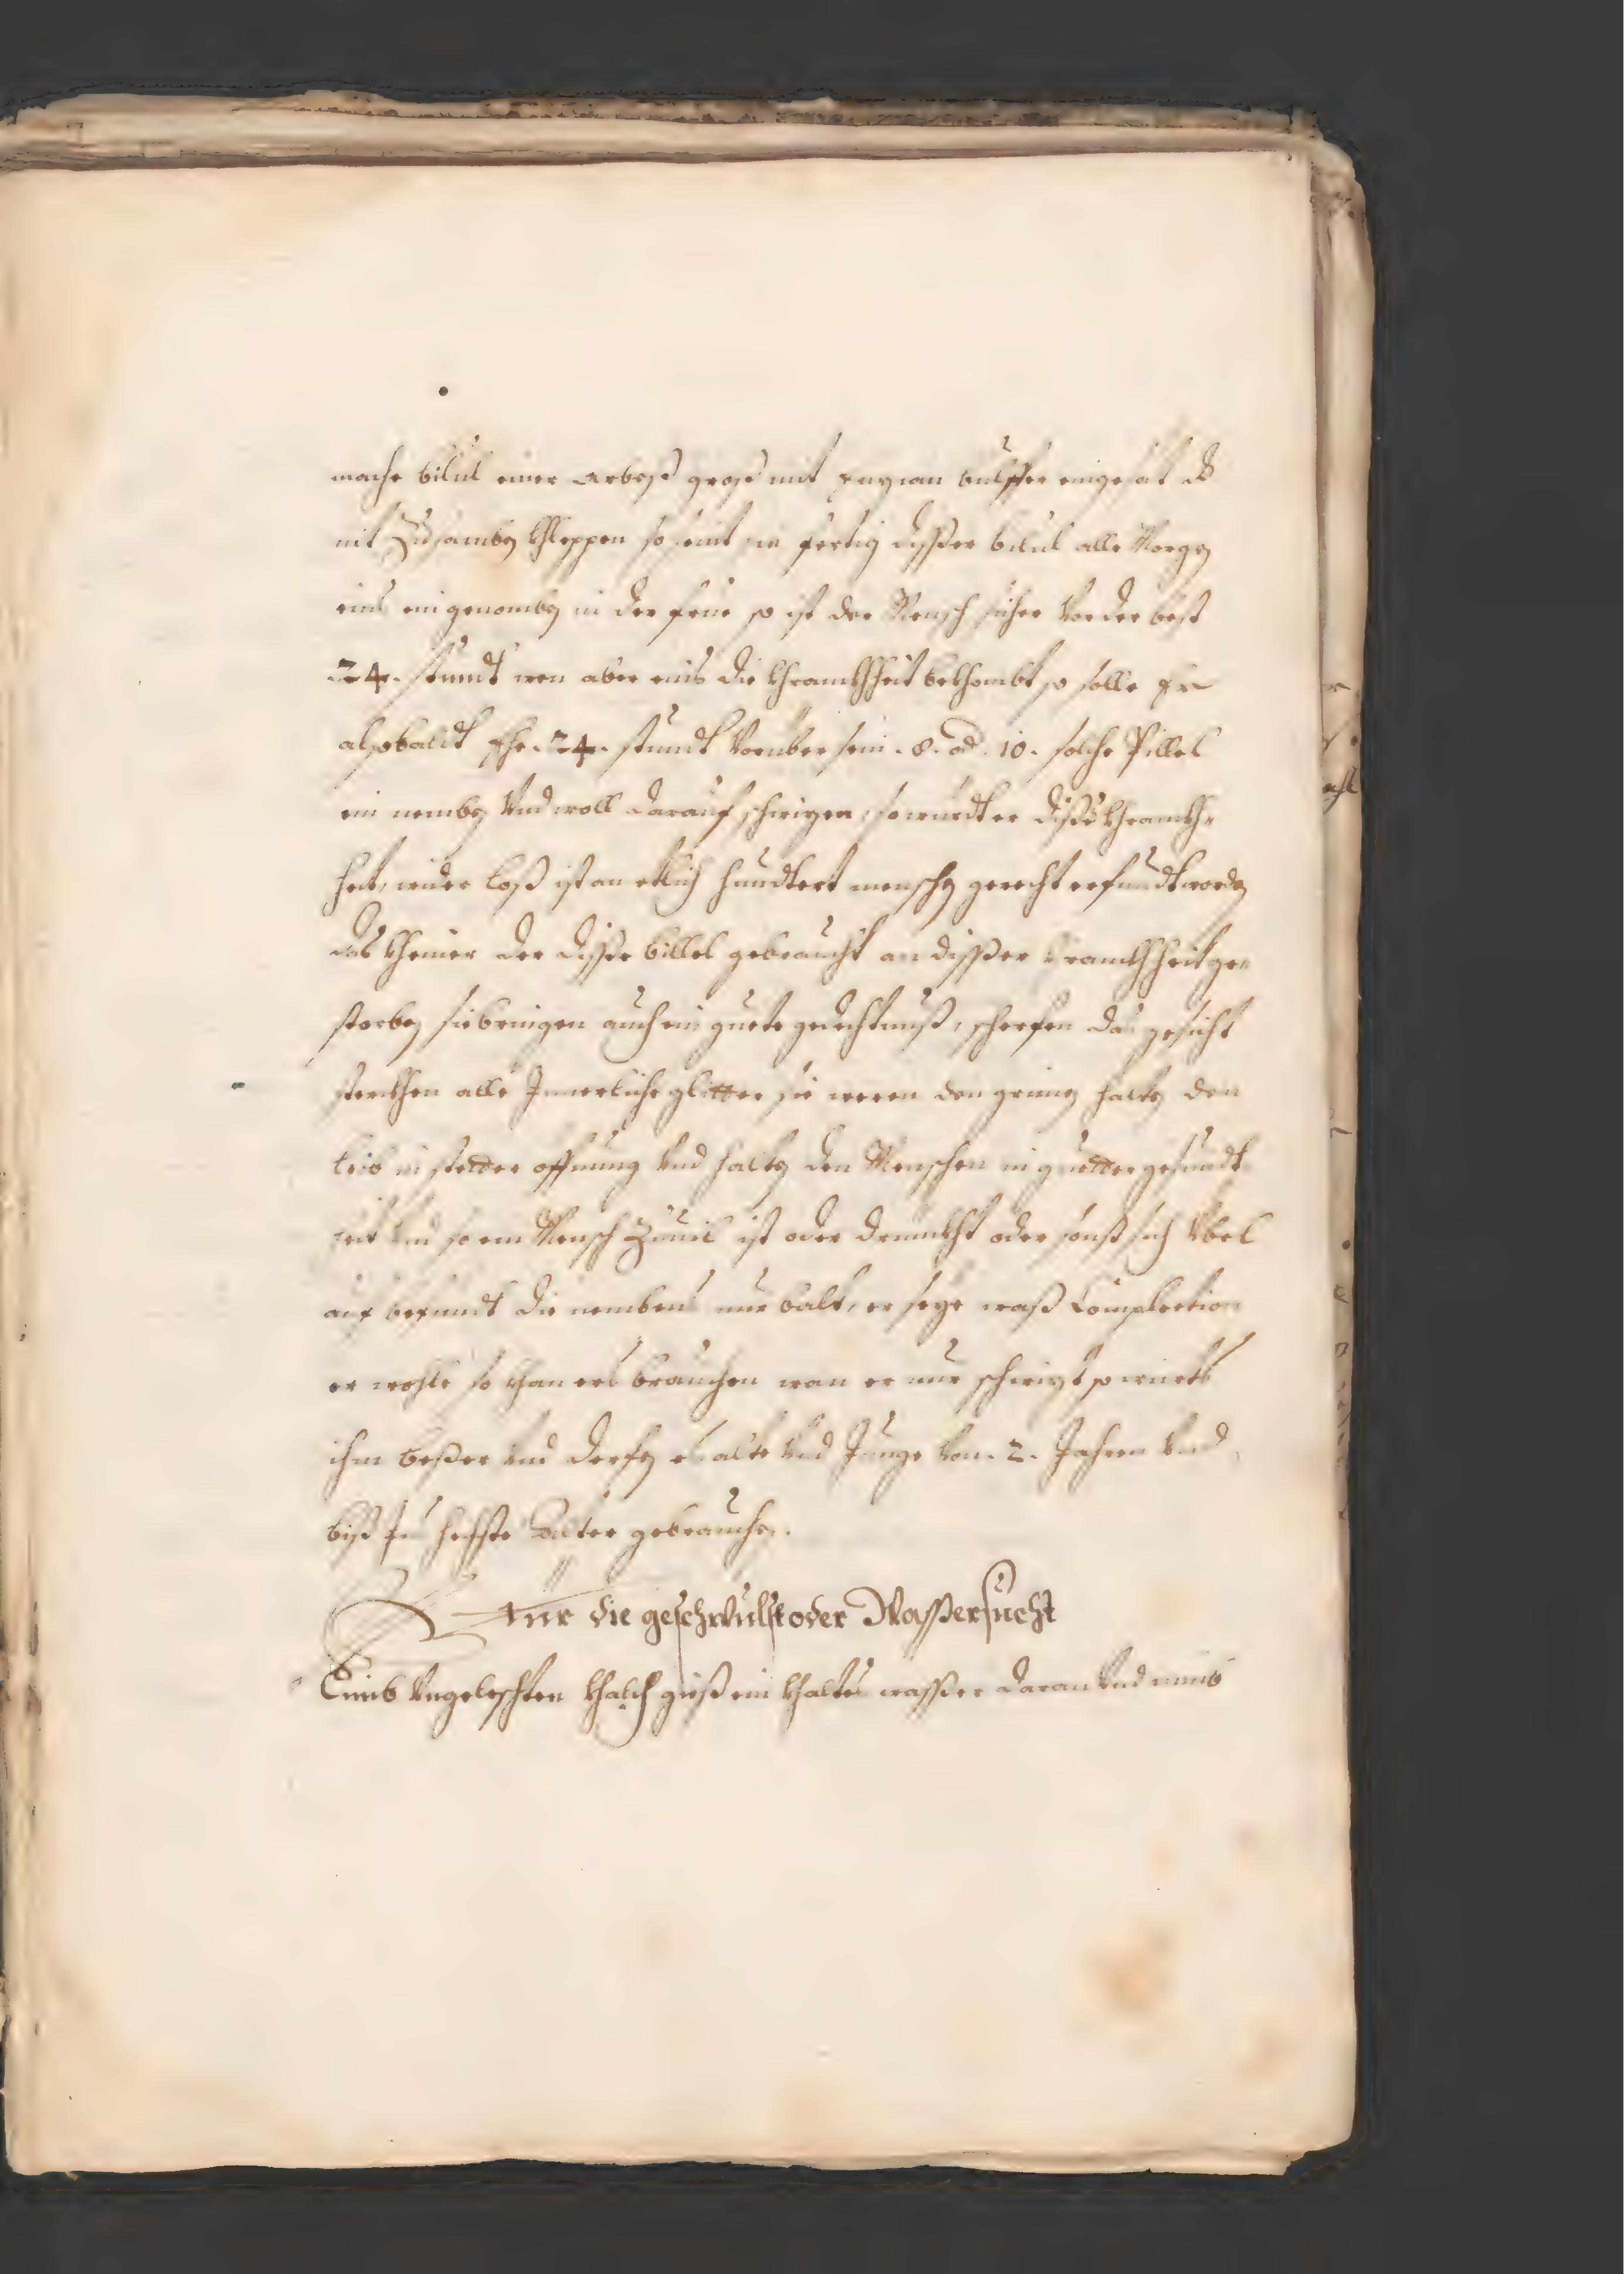 mache bilul einer arbeß groß mit enzian bulffer eingesät dß
nit Zusamben khleppen so seint sie fertig disßer bilul alle Morgen
eins eingenomben in der frue so ist der Mensch sicher Vor der best
24. stundt wen aber eins die khrankhheit bekhombt so solle Er
alsobaldt Ehe .24. stundt Voruber sein .8. od .10. solche Pillel
ein nemben Vnd woll darauf schwizen, so wurdt er diße khrankh=
heit, wider loß ist an etlich hundtert menschen gerecht erfundt worden
das kheiner der disße billel gebraucht an disßer khrankhheit ge=
storben sie bringen auch ein guete gedechtnuß, scherfen das gesicht
sterkhen alle Innerliche glitter sie weren den grimen halten den
leib in stetter offnung Vnd halten den Menschen in guetter gesundt
heit Vnd so ein Mensch Zuuil ist oder drinkht oder sonst sich Vbel
auf befundt die nembens nur balt, er seye waß Complection
er wohle so khan ers brauchen wan er nur schwizt so wirts
ihm beßer Vnd derfen es alte Vnd Junge Von .2. Jahren Vnd
biß Ins hechste alter gebrauchen.
Fur die geschwulst oder Wasßersucht
Nimb Vngeleschten khalch gieß ein khaltes wasßer daran Vnd nimb